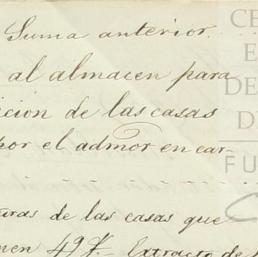 Suma anterior.
al almacen para
icion de las casas
por el admor en car-
uras de las casas que
men 497. Extracto de
CE
E
DE
D
FU